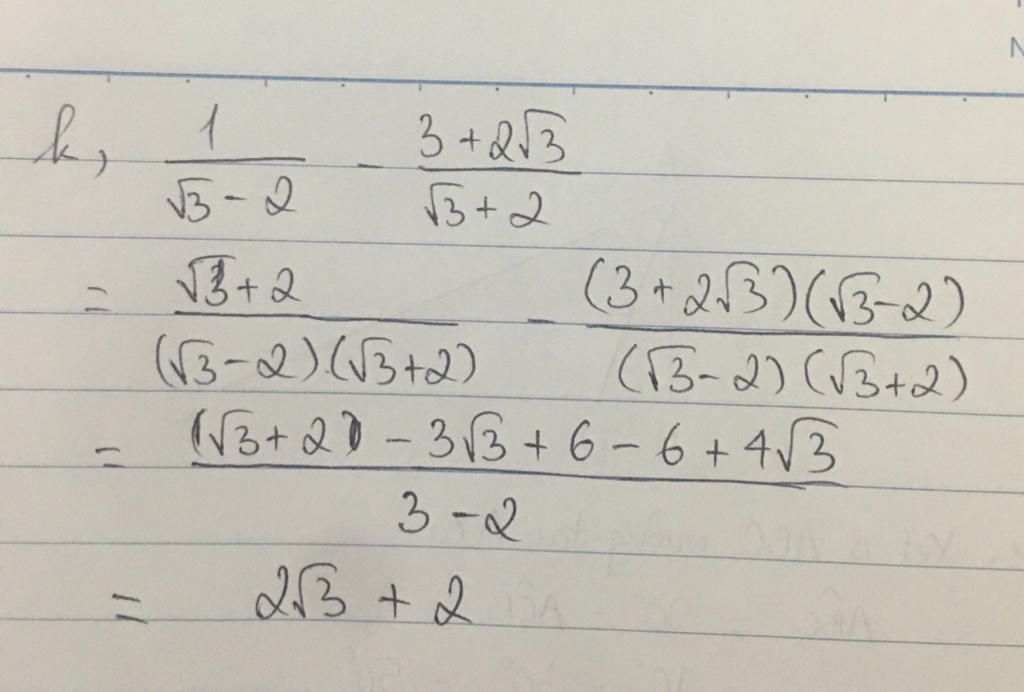 k, 1/(√3 - 2) - (3 + 2√3)/(√3 + 2)
= (√3 + 2)/((√3 - 2).(√3 + 2)) - ((3 + 2√3)(√3 - 2))/((√3 - 2)(√3 + 2))
= ((√3 + 2) - 3√3 + 6 - 6 + 4√3)/(3 - 2)
= 2√3 + 2